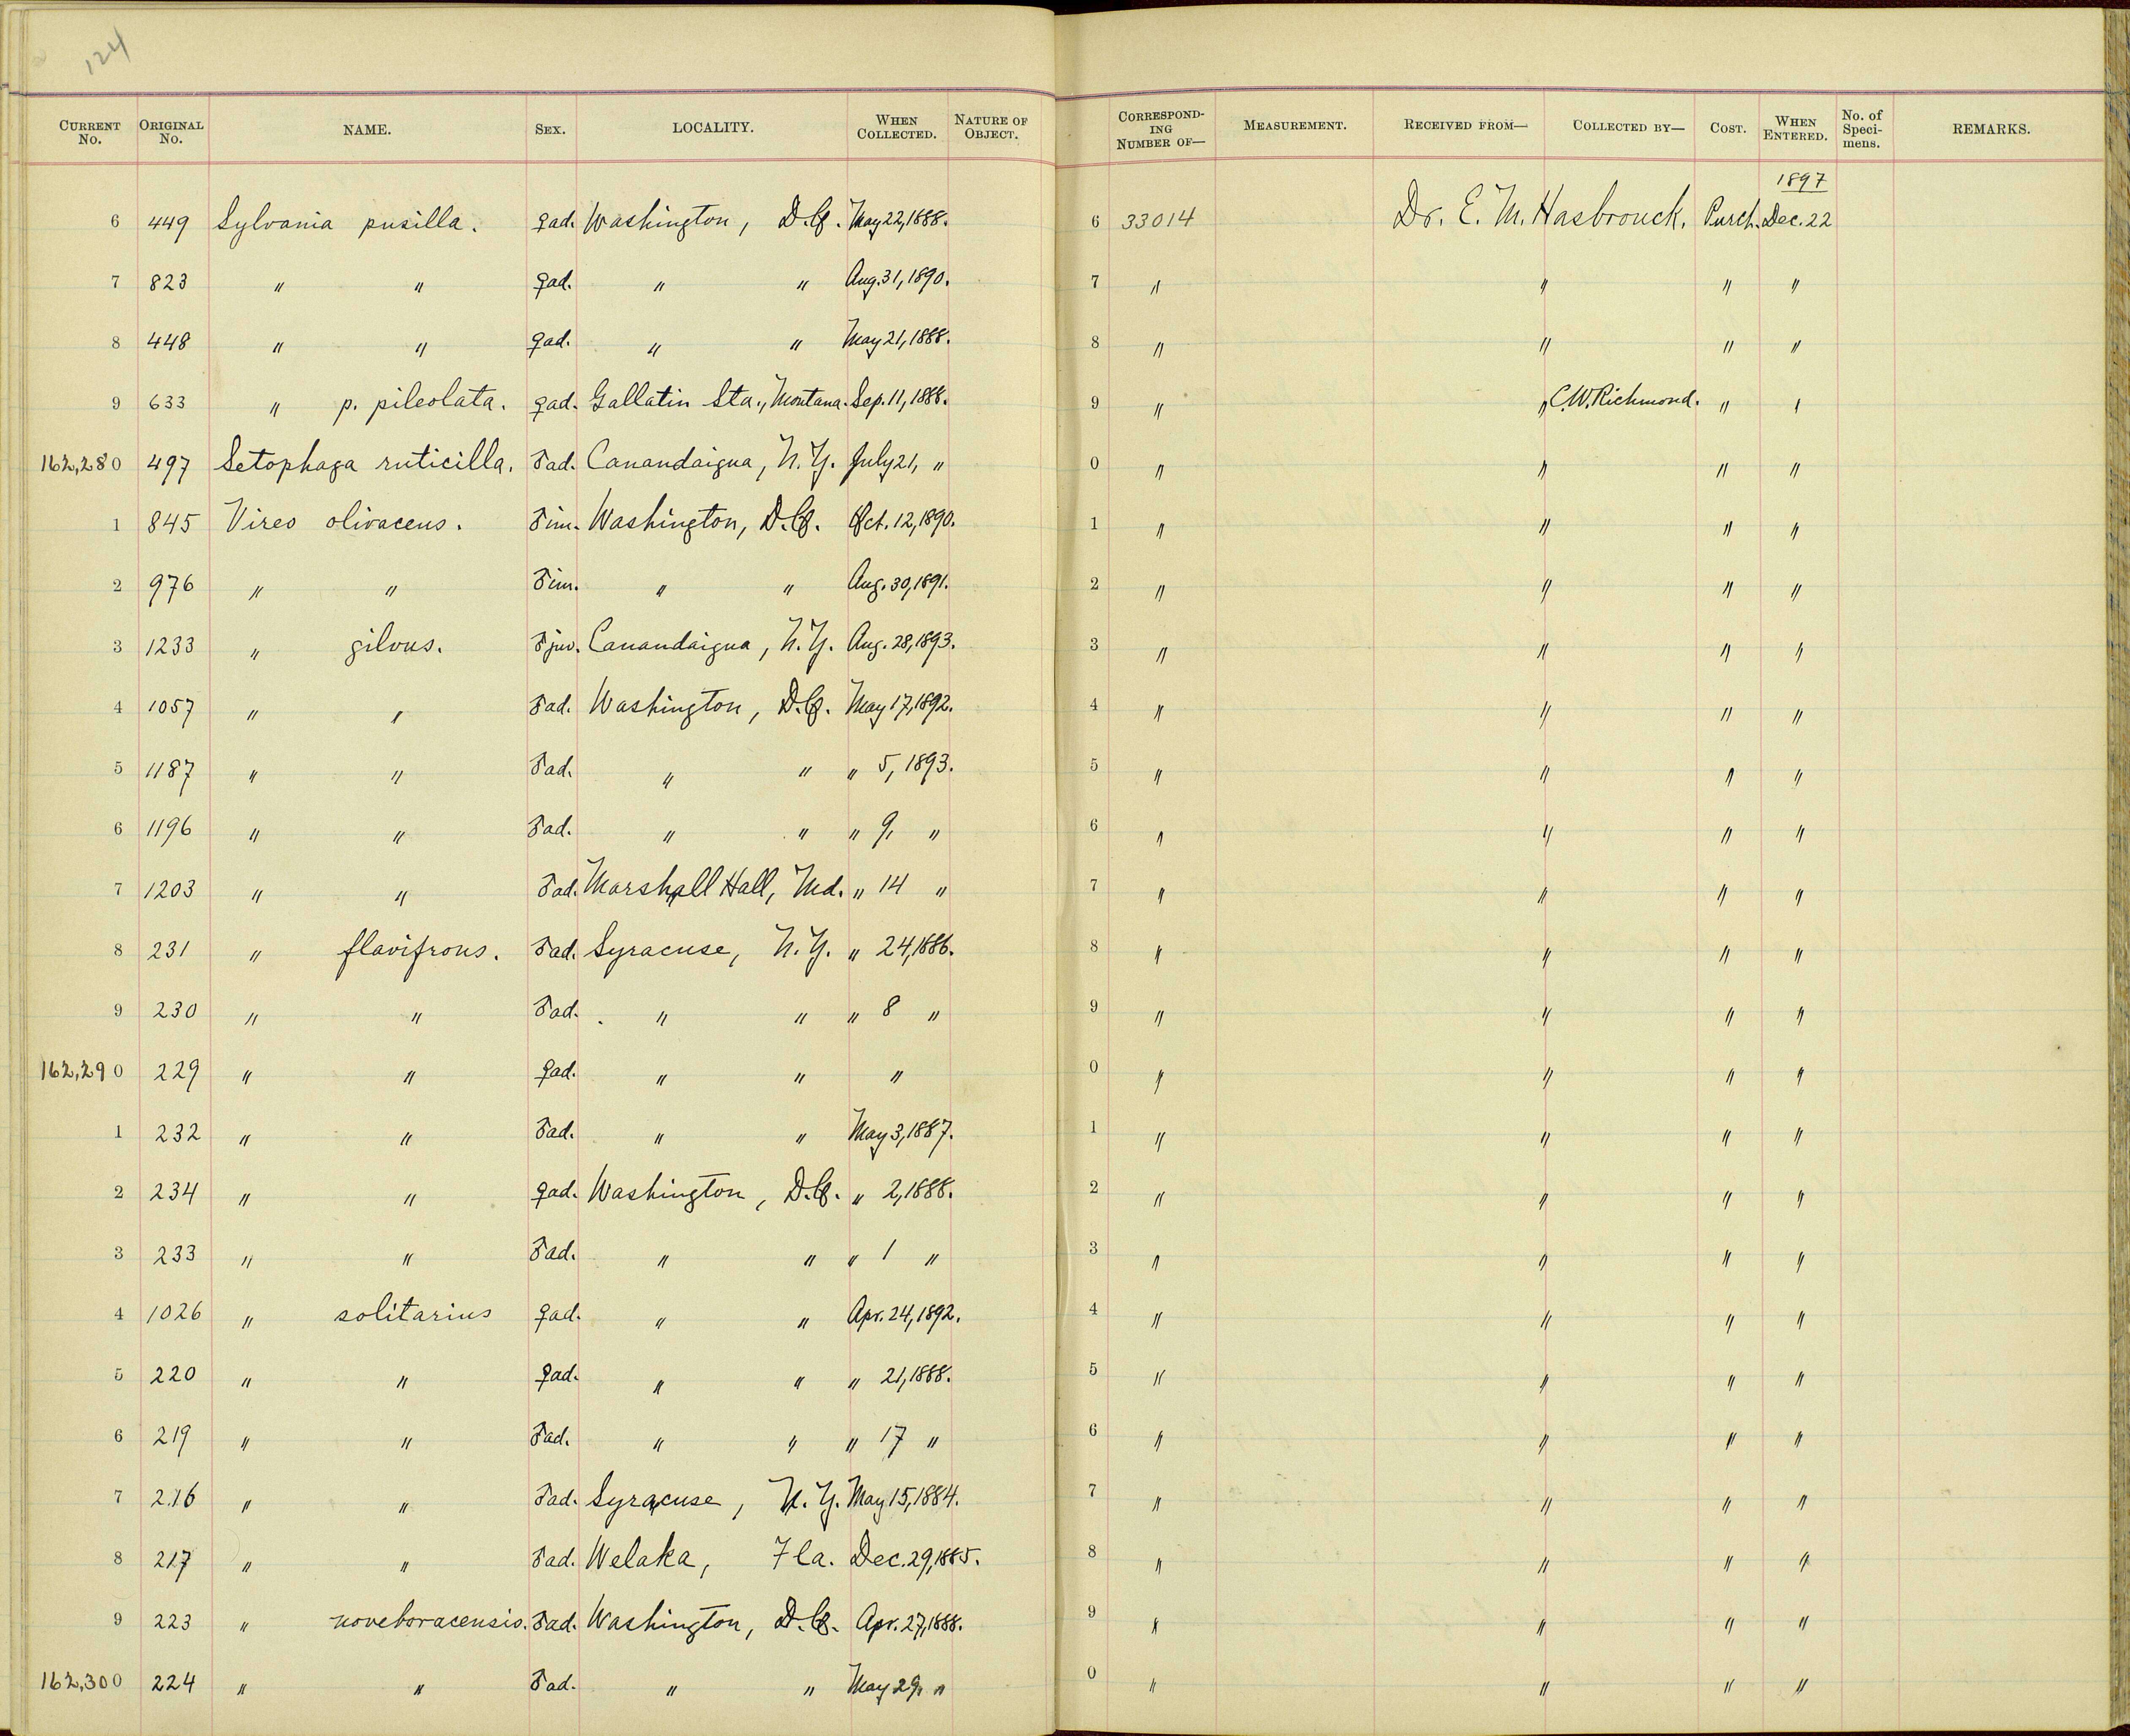 124
CURRENT No. ORIGINAL No. NAME. SEX. LOCALITY. WHEN COLLECTED. NATURE OF OBJECT. CORRESPONDING NUMBER OF— MEASUREMENT. RECEIVED FROM— COLLECTED BY— COST. WHEN ENTERED. No. of Speci-mens. REMARKS.
1897
6 449 Sylvania pusilla. ♀ad. Washington, D.C. May 22, 1888. 6 33014 Dr. E. M. Hasbrouck. Purch. Dec. 22
7 823 " " ♀ad. " " Aug. 31, 1890. 7 " " " "
8 448 " " ♀ad. " " May 21, 1888. 8 " " " "
9 633 " p. pileolata. ♀ad. Gallatin Sta., Montana. Sep. 11, 1888. 9 " " C.W. Richmond. " "
162,280 497 Setophaga ruticilla. ♂ad. Canandaigua, N.Y. July 21, " 0 " " " "
1 845 Vireo olivaceus. ♂im. Washington, D.C. Oct. 12, 1890. 1 " " " "
2 976 " " ♂im. " " Aug. 30, 1891. 2 " " " "
3 1233 " gilvus. ♂juv. Canandaigua, N.Y. Aug. 28, 1893. 3 " " " "
4 1057 " " ♂ad. Washington, D.C. May 17, 1892. 4 " " " "
5 1187 " " ♂ad. " " " 5, 1893. 5 " " " "
6 1196 " " ♂ad. " " " 9, " 6 " " " "
7 1203 " " ♂ad. Marshall Hall, Md. " 14 " 7 " " " "
8 231 " flavifrons. ♂ad. Syracuse, N.Y. " 24, 1886. 8 " " " "
9 230 " " ♂ad. " " " 8 " 9 " " " "
162,290 229 " " ♀ad. " " " 0 " " " "
1 232 " " ♂ad. " " May 3, 1887. 1 " " " "
2 234 " " ♀ad. Washington, D.C. " 2, 1888. 2 " " " "
3 233 " " ♂ad. " " " 1 " 3 " " " "
4 1026 " solitarius ♀ad. " " Apr. 24, 1892. 4 " " " "
5 220 " " ♀ad. " " " 21, 1888. 5 " " " "
6 219 " " ♂ad. " " " 17 " 6 " " " "
7 216 " " ♂ad. Syracuse, N.Y. May 15, 1884. 7 " " " "
8 217 " " ♂ad. Welaka, Fla. Dec. 29, 1885. 8 " " " "
9 223 " noveboracensis. ♂ad. Washington, D.C. Apr. 27, 1888. 9 " " " "
162,300 224 " " ♂ad. " " May 29, " 0 " " " "